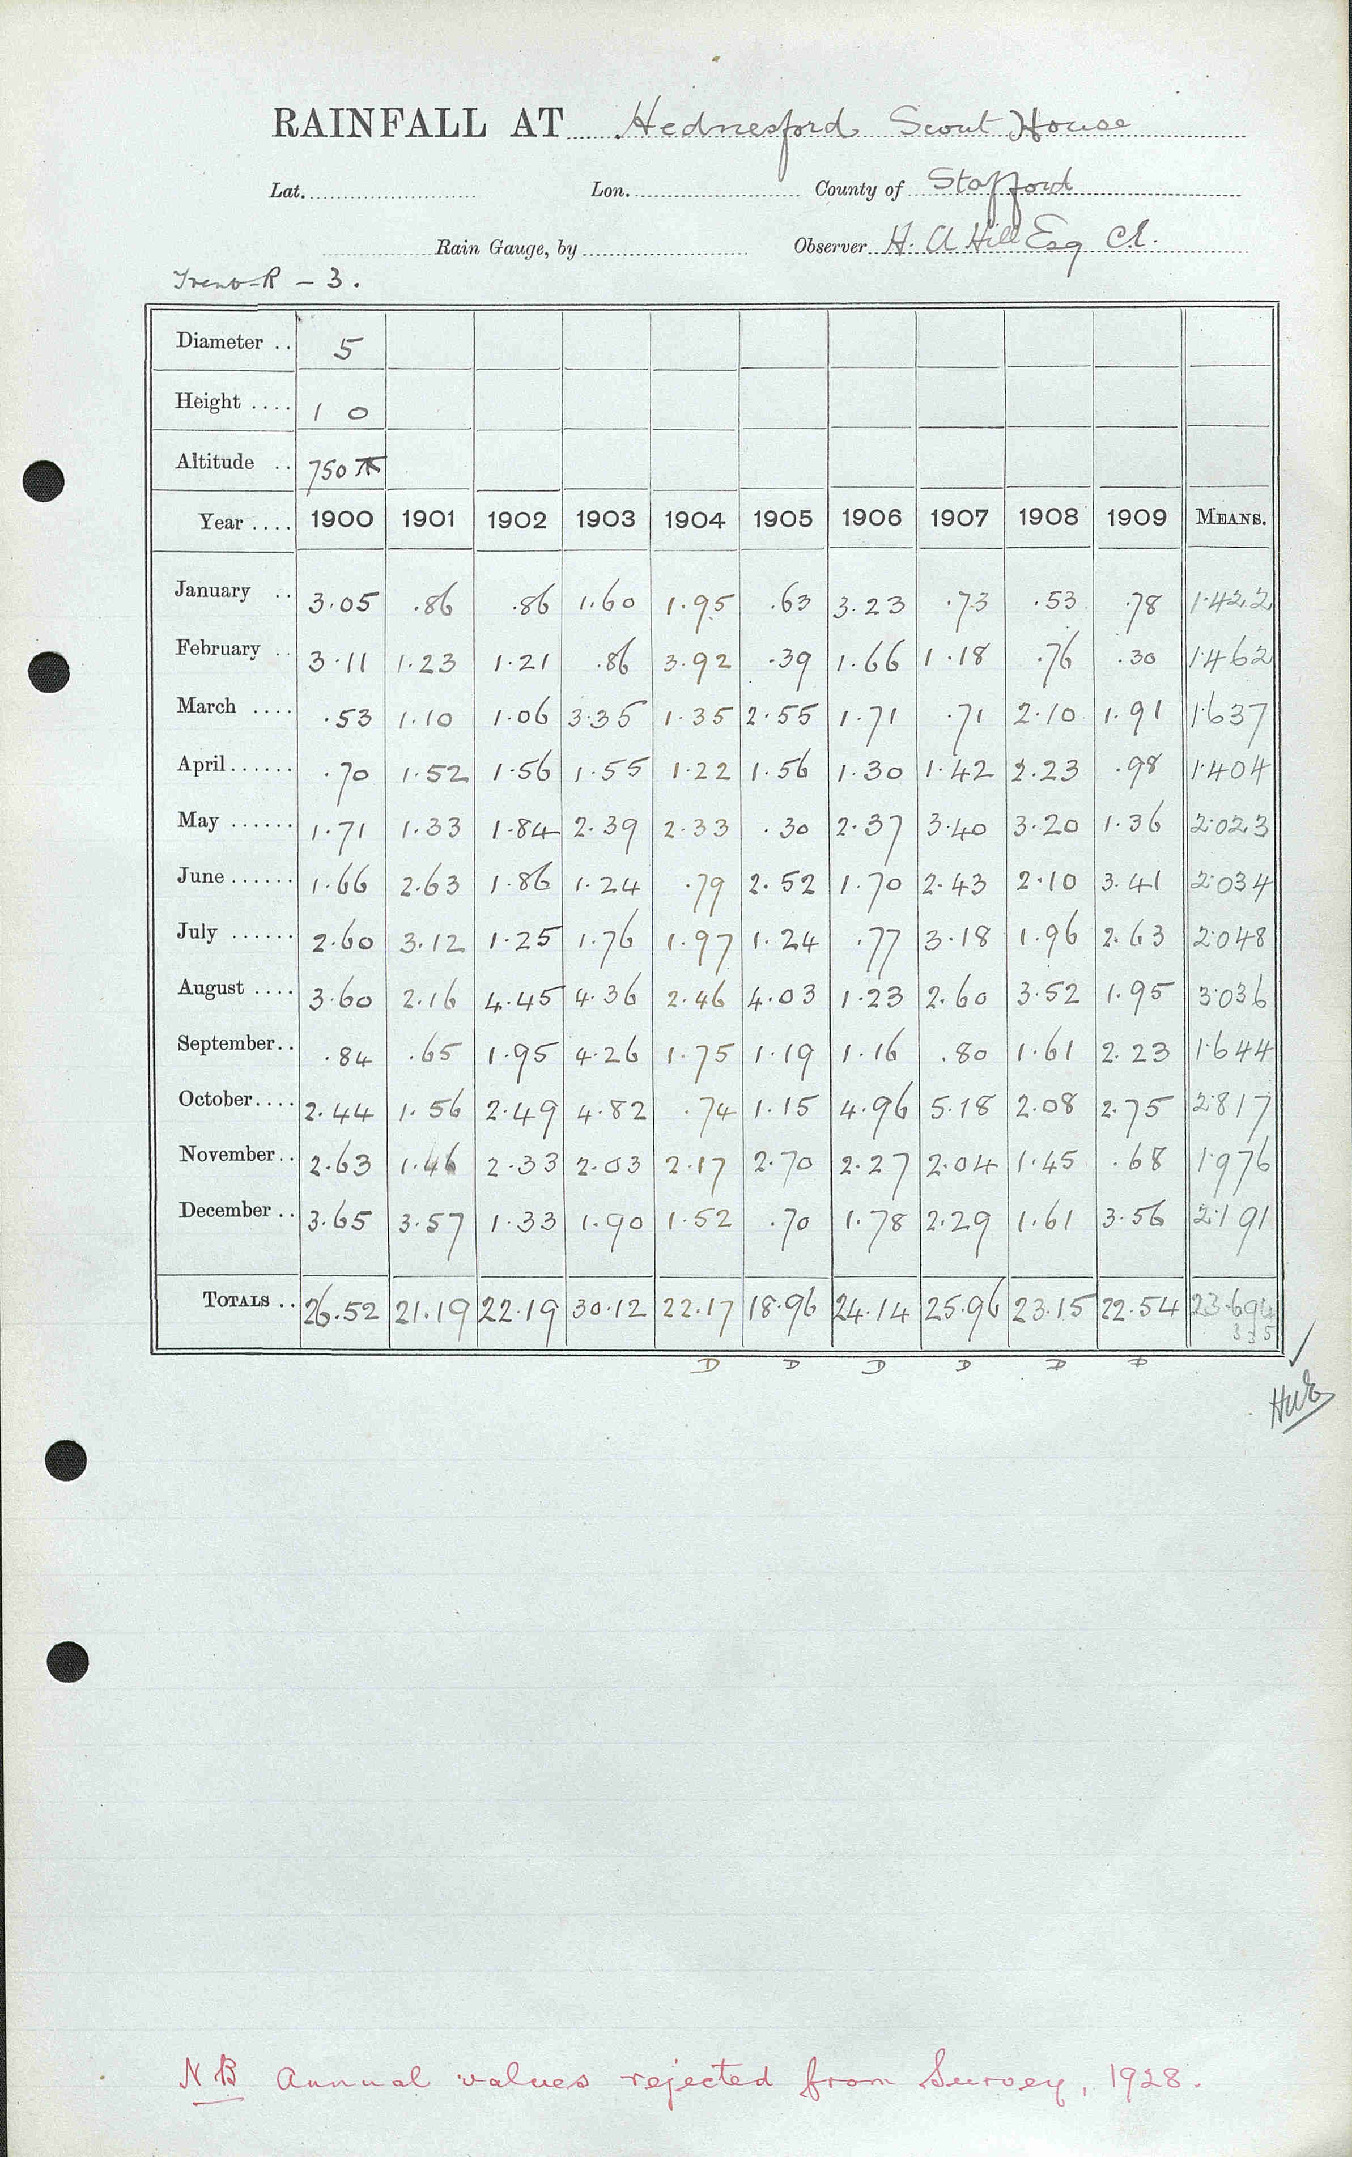 RAINFALL AT Hednesford Scout House
Lat. Lon. County of Stafford
Rain Gauge, by Observer H. A Hill Esq
Trent-R - 3.
Diameter .. 5
Height .... 1 0
Altitude .. 750
Year .... 1900 1901 1902 1903 1904 1905 1906 1907 1908 1909 MEANS.
January .. 3.05 .86 .86 1.60 1.95 .63 3.23 .73 .53 .78 1.422
February .. 3.11 1.23 1.21 .86 3.92 .39 1.66 1.18 .76 .30 1.462
March .... .53 1.10 1.06 3.35 1.35 2.55 1.71 .71 2.10 1.91 1.637
April...... .70 1.52 1.56 1.55 1.22 1.56 1.30 1.42 2.23 .98 1.404
May ...... 1.71 1.33 1.84 2.39 2.33 .30 2.37 3.40 3.20 1.36 2.023
June...... 1.66 2.63 1.86 1.24 .79 2.52 1.70 2.43 2.10 3.41 2.034
July ...... 2.60 3.12 1.25 1.76 1.97 1.24 .77 3.18 1.96 2.63 2.048
August .... 3.60 2.16 4.45 4.36 2.46 4.03 1.23 2.60 3.52 1.95 3.036
September.. .84 .65 1.95 4.26 1.75 1.19 1.16 .80 1.61 2.23 1.644
October.... 2.44 1.56 2.49 4.82 .74 1.15 4.96 5.18 2.08 2.75 2.817
November.. 2.63 1.46 2.33 2.03 2.17 2.70 2.27 2.04 1.45 .68 1.976
December .. 3.65 3.57 1.33 1.90 1.52 .70 1.78 2.29 1.61 3.56 2.191
TOTALS .. 26.52 21.19 22.19 30.12 22.17 18.96 24.14 25.96 23.15 22.54 23.694
D D D D D D
NB Annual values rejected from Survey, 1928.